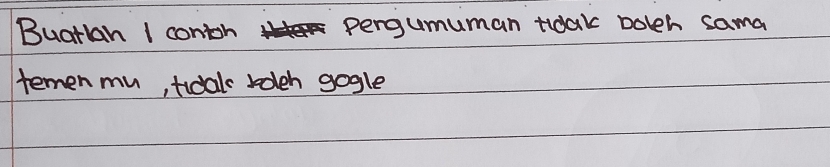 Buatlah 1 contoh Pergumuman tidak boleh sama
temen mu , tidak boleh gogle